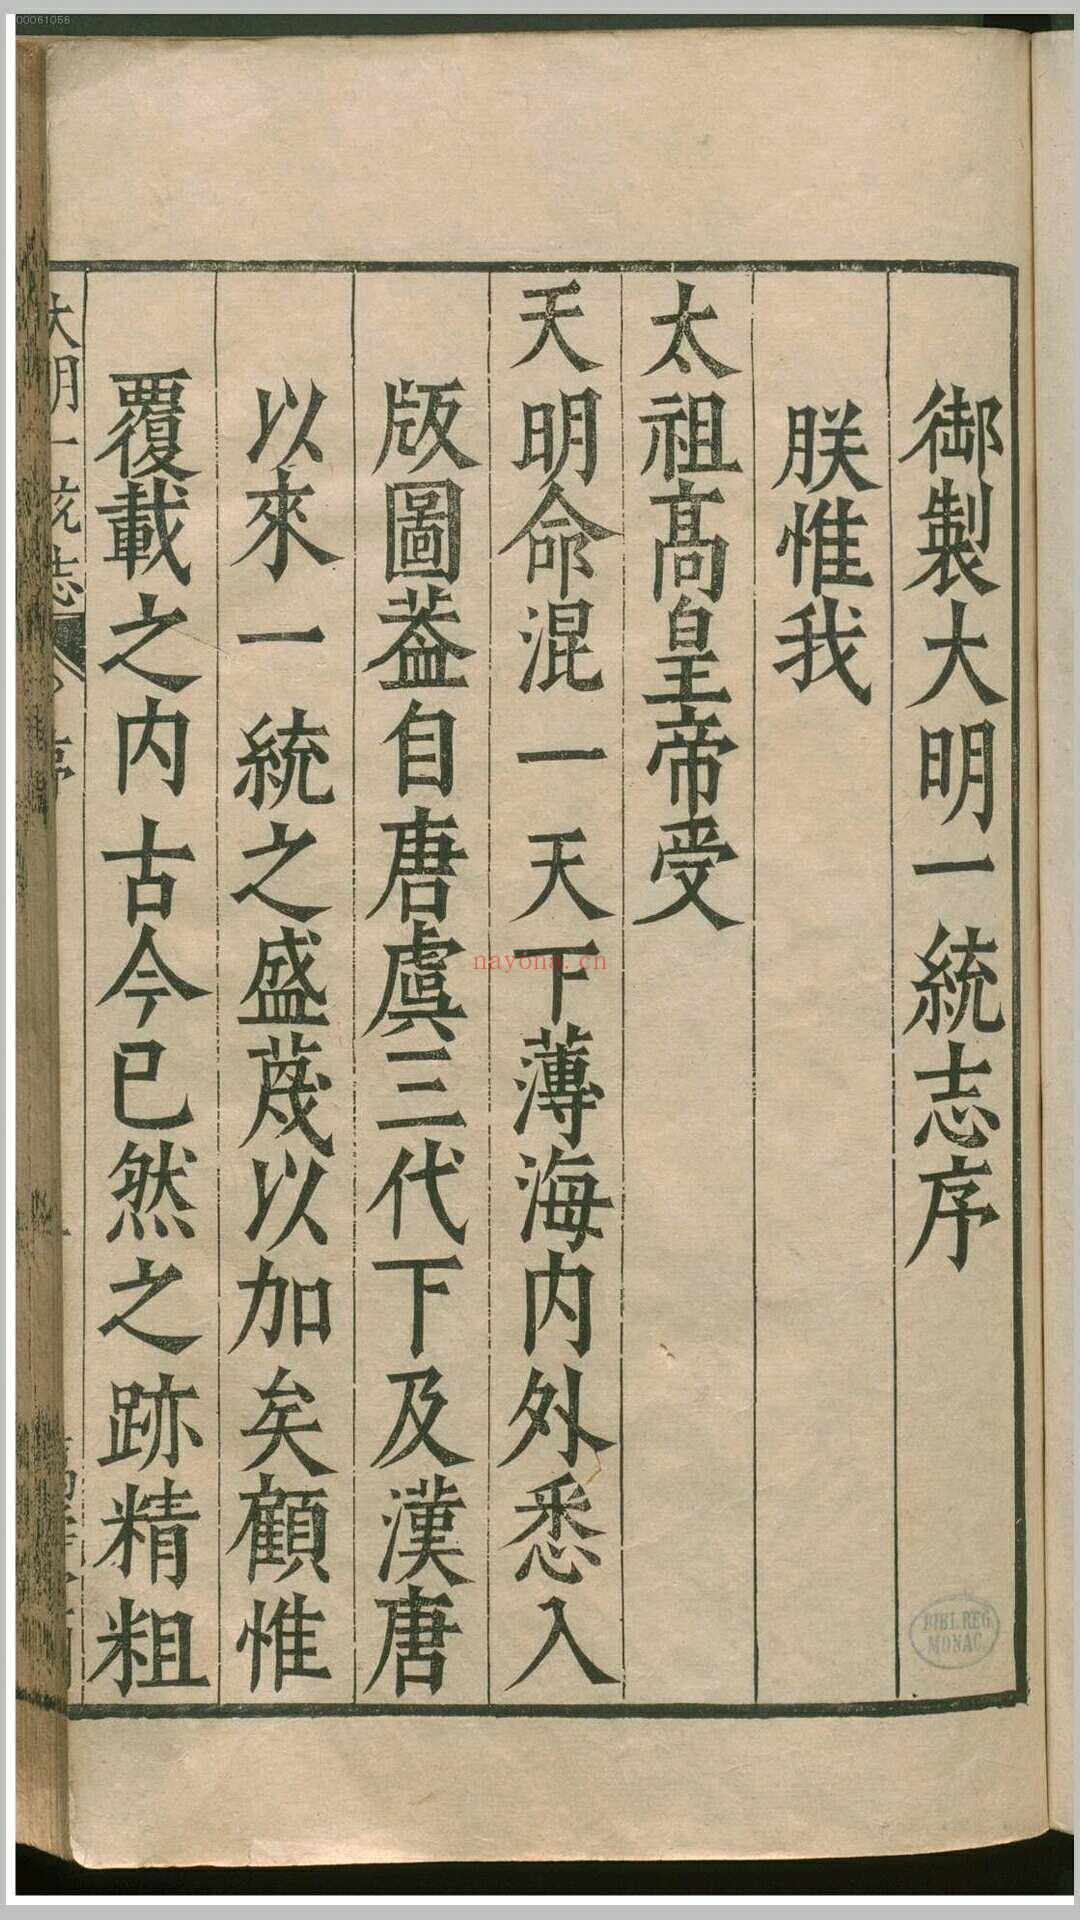 00061056
御製大明一統志序
朕惟我
太祖髙皇帝受
天明命混一天下薄海內外悉入
版圖葢自唐虞三代下及漢唐
以來一統之盛蔑以加矣顧惟
覆載之內古今已然之跡精粗
大明一統志
序
nayona.cn
BIBL.REG.
MONAC.